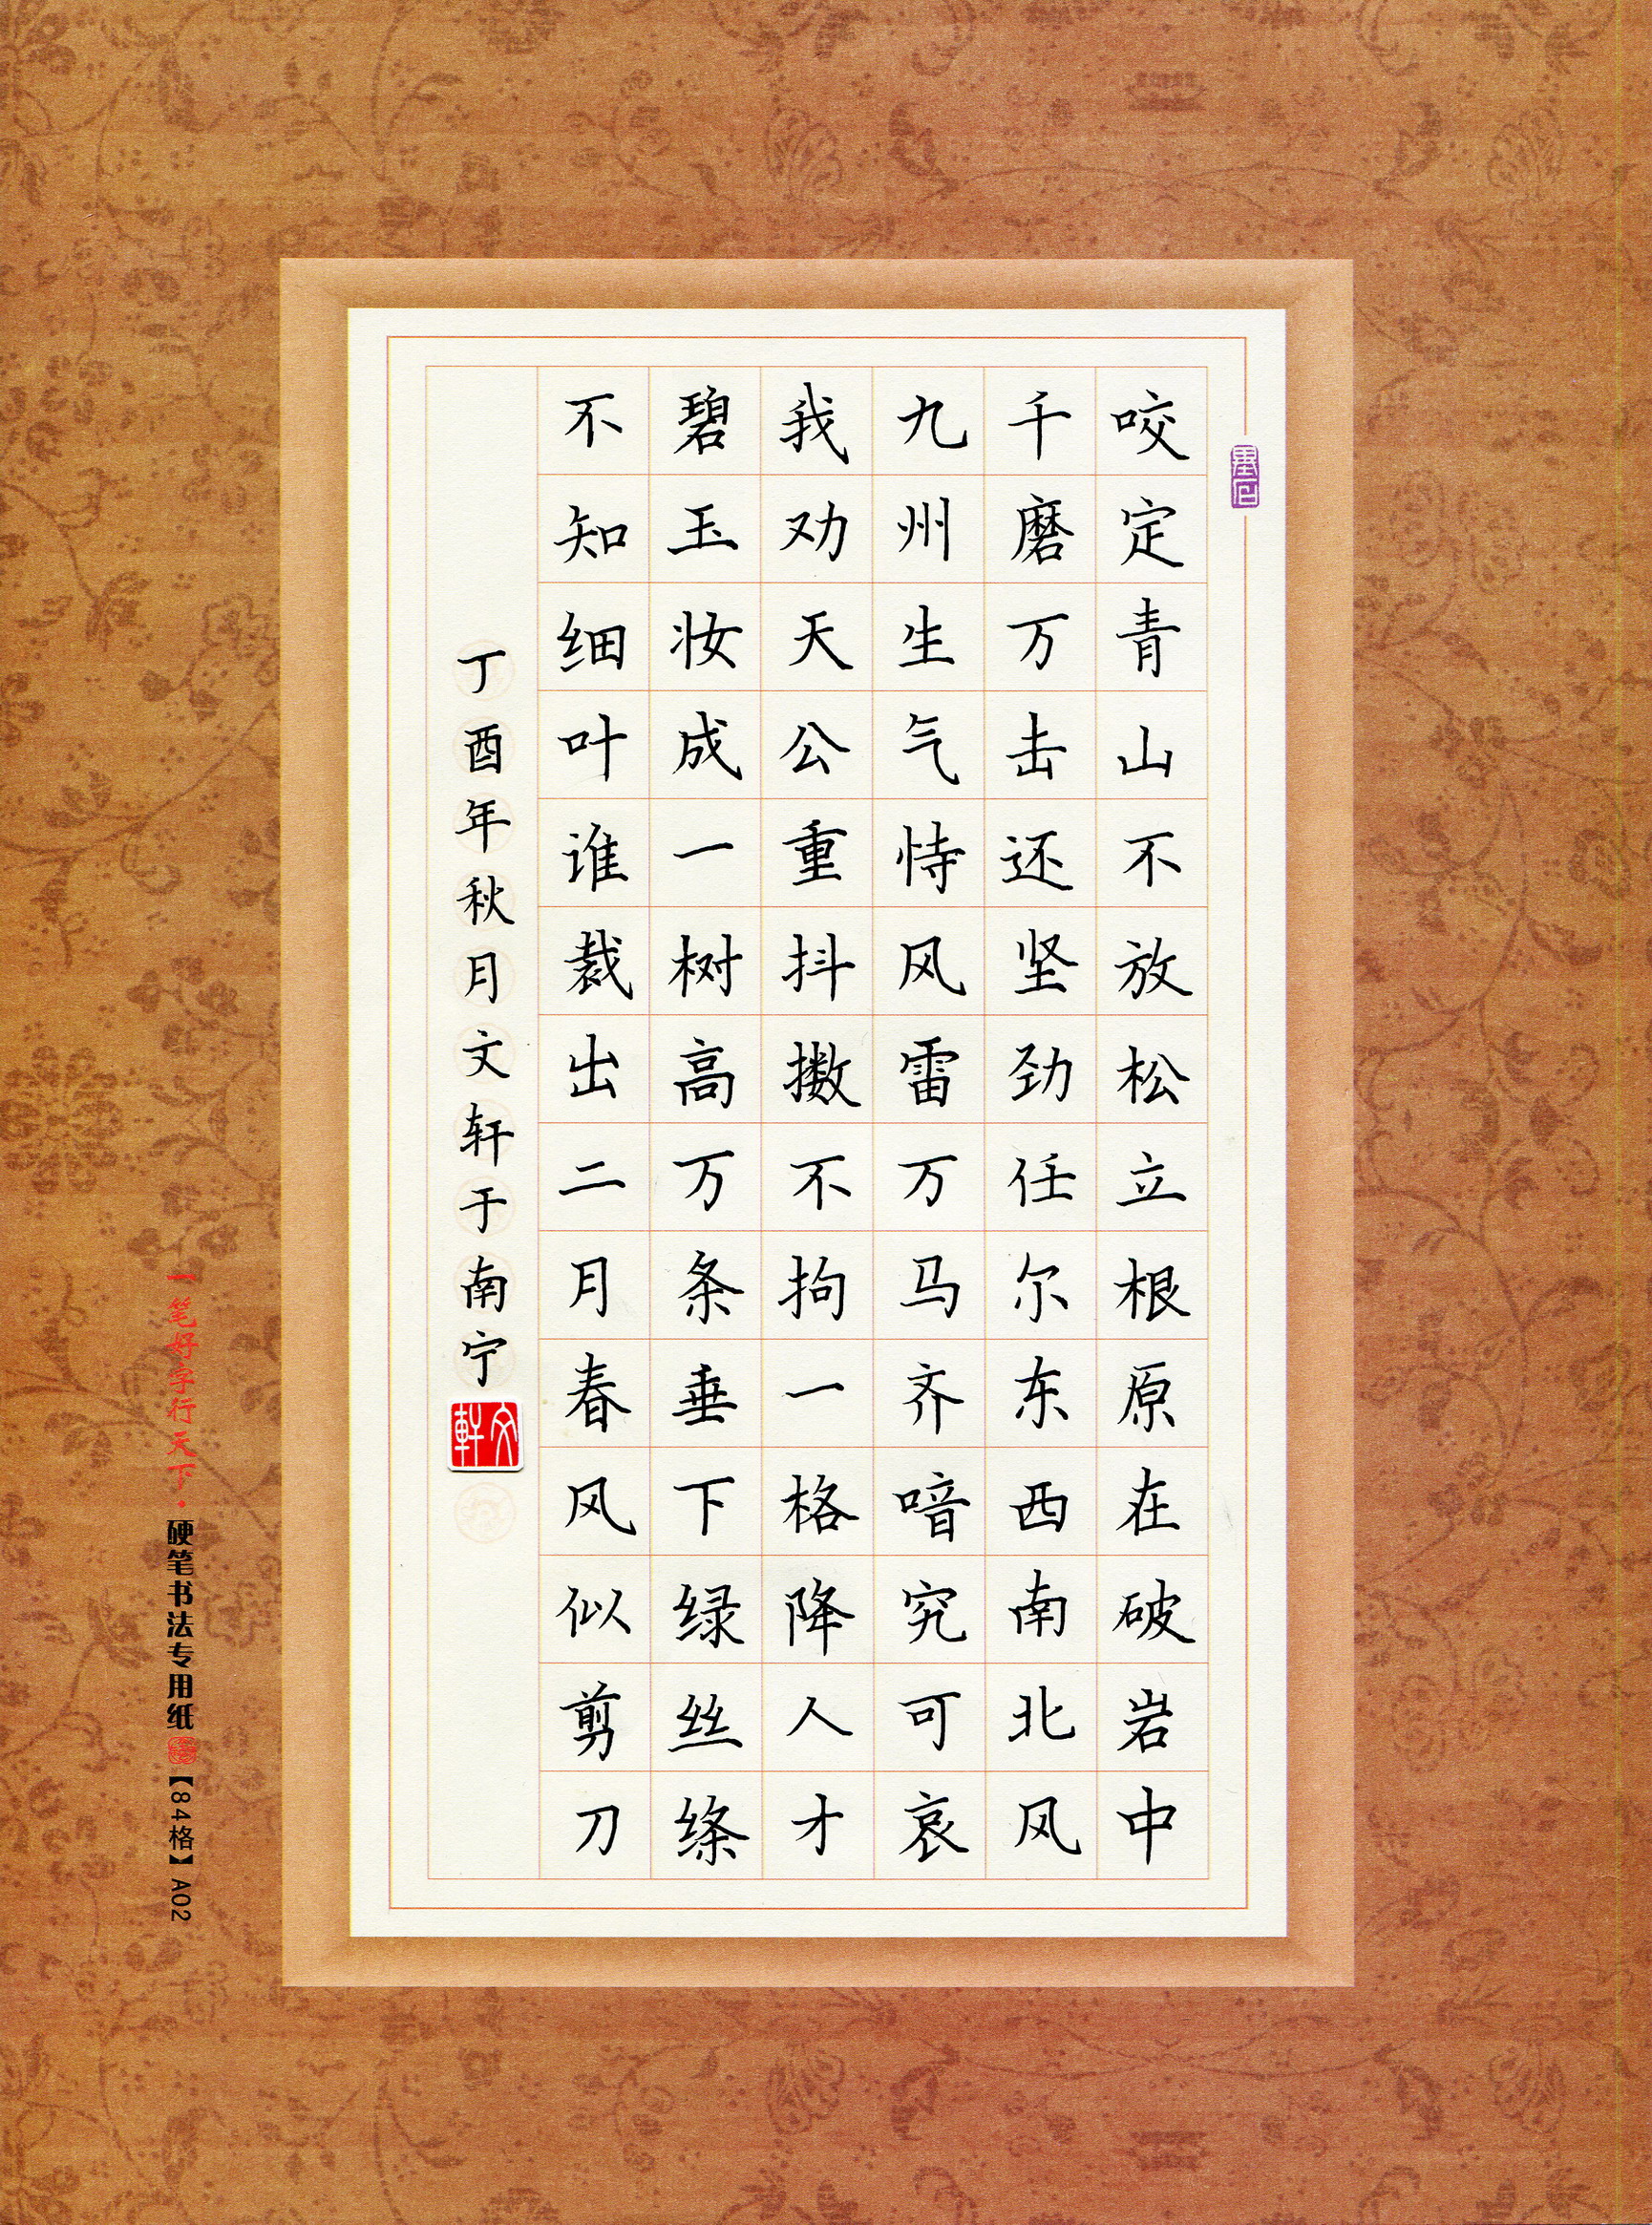 咬定青山不放松立根原在破岩中
千磨万击还坚劲任尔东西南北风
九州生气恃风雷万马齐喑究可哀
我劝天公重抖擞不拘一格降人才
碧玉妆成一树高万条垂下绿丝绦
不知细叶谁裁出二月春风似剪刀
丁酉年秋月文轩于南宁
文軒
一笔好字行天下·硬笔书法专用纸【84格】A02